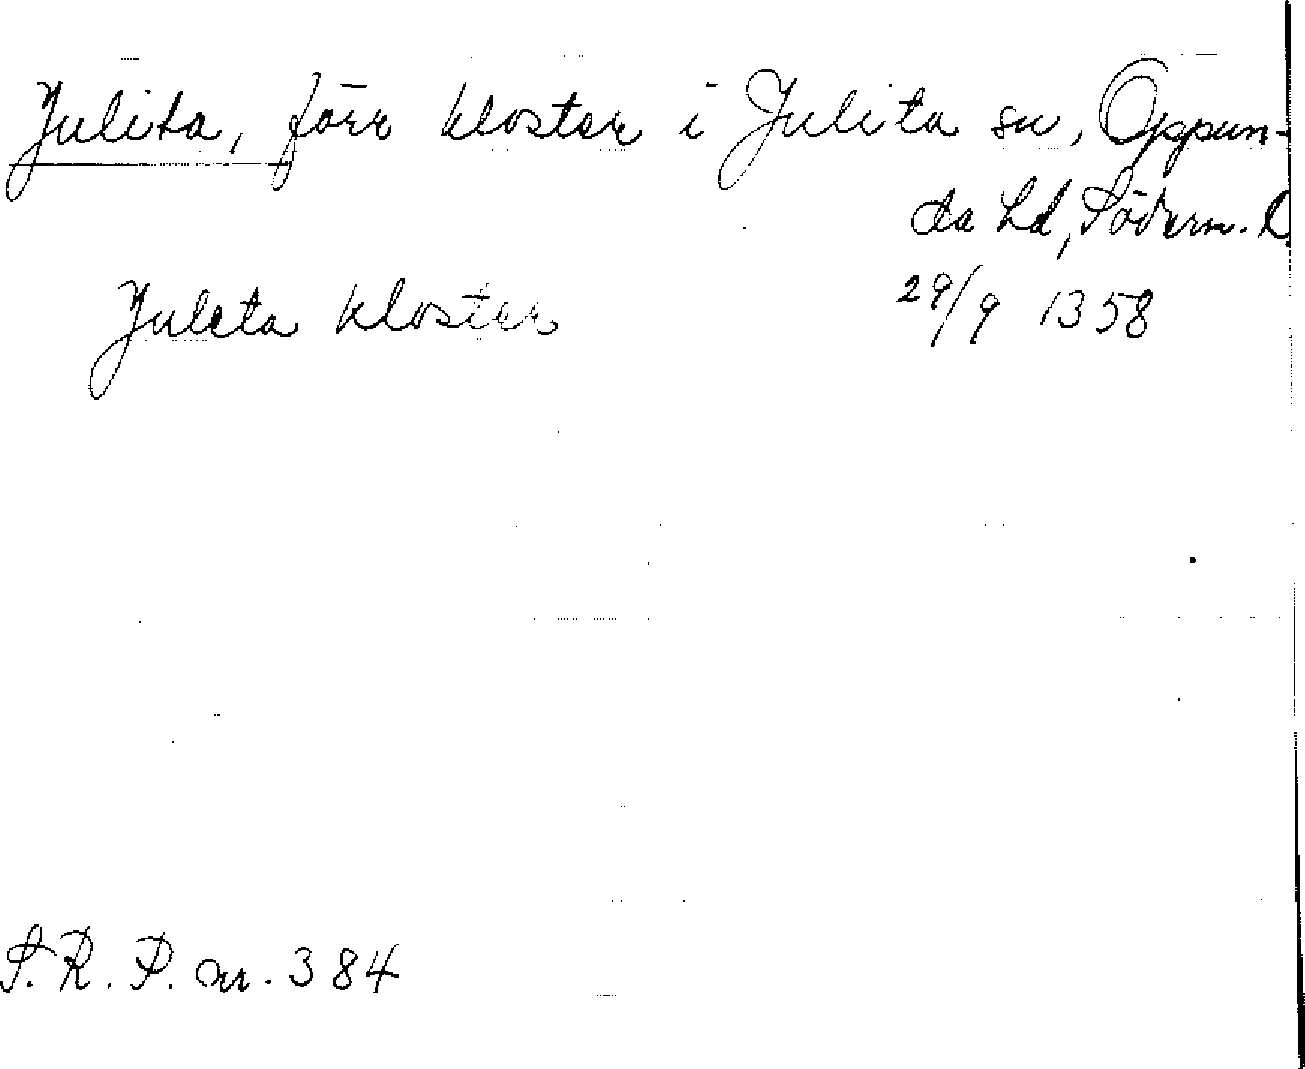 Julita, förr kloster i Julita sn, Oppun-
da hd, Söderm. l.
Juleta kloster 29/9 1358
S.R.P. nr. 384